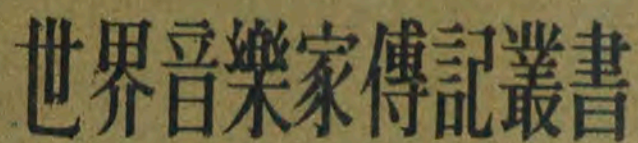 世界音樂家傳記叢書